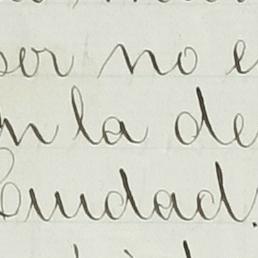 ser no e
n la de
Ciudad.